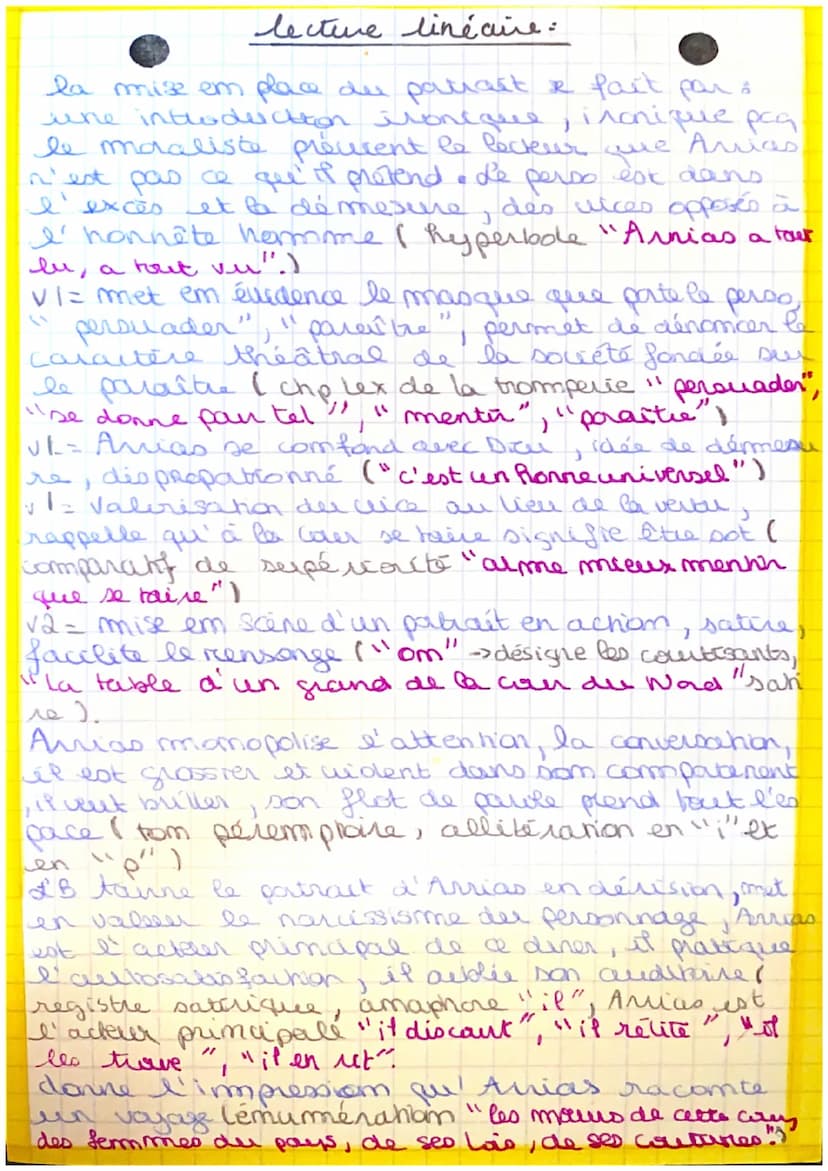 lecture linéaire :
la mise em place du portrait se fait par :
une introduction ironique, ironique pcq
le moraliste prévient le lecteur que Arrias
n'est pas ce qu'il prétend. Le perso est dans
l'excès et la démesure, des vices opposés à
l'honnête homme ( hyperbole "Arrias a tout
lu, a tout vu".)
v1= met em évidence le masque que porte le perso,
" persuader", "paraître", permet de dénoncer le
caractère théâtral de la société fondée sur
le paraître ( chp lex de la tromperie "persuader",
"se donne pour tel", " mentir", "paraître")
v1= Arrias se comfond avec Dieu, idée de démesu
re, disproportionné ("c'est un homme universel")
v1= valorisation du vice au lieu de la vertu,
rappelle qu'à la cour se taire signifie être sot (
comparatif de supériorité "aime mieux mentir
que se taire")
v2= mise em scène d'un portrait en action, satire,
facilite le mensonge ("om" →désigne les courtisants,
"la table d'un grand de la cour du Nord "sati
re ).
Arrias momopolise l'attention, la conversation,
il est grossier et violent dans som comportement
, il veut briller, son flot de parole prend tout l'es
pace ( tom péremptoire, allitération en "i" et
en "p" )
LB tourne le portrait d'Arrias en dérision, met
en valeur le narcissisme du personnage, Arrias
est l'acteur principal de ce diner, il pratique
l'autosatisfaction, il oublie son auditoire (
registre satirique, amaphore "il", Arrias est
l'acteur principale "il discourt", "il récite", "il
les trouve ", "il en rit".
donne l'impression qu'Arrias raconte
un voyage (émumération "les mœurs de cette cour,
des femmes du pays, de ses lois, de ses coutumes.")